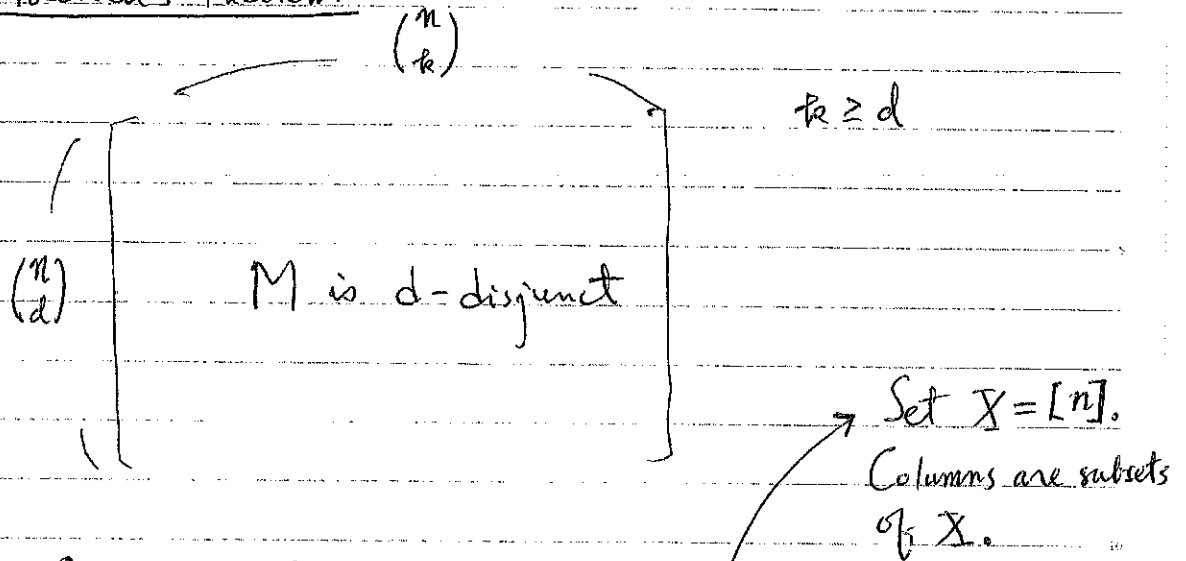 (n k)
k ≥ d
(n d)
M is d-disjunct
Set X = [n].
Columns are subsets
of X.